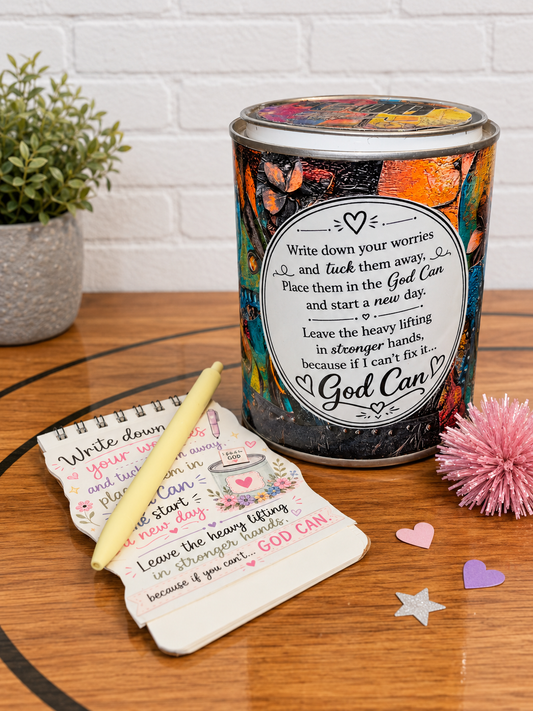 Write down your worries
and tuck them away,
Place them in the God Can
and start a new day.
Leave the heavy lifting
in stronger hands,
because if I can't fix it...
God Can
Write down
your
and tuck away
place in
CAN
start
new day.
Leave the heavy lifting
in stronger hands.
because if you can't... GOD CAN.
GOD